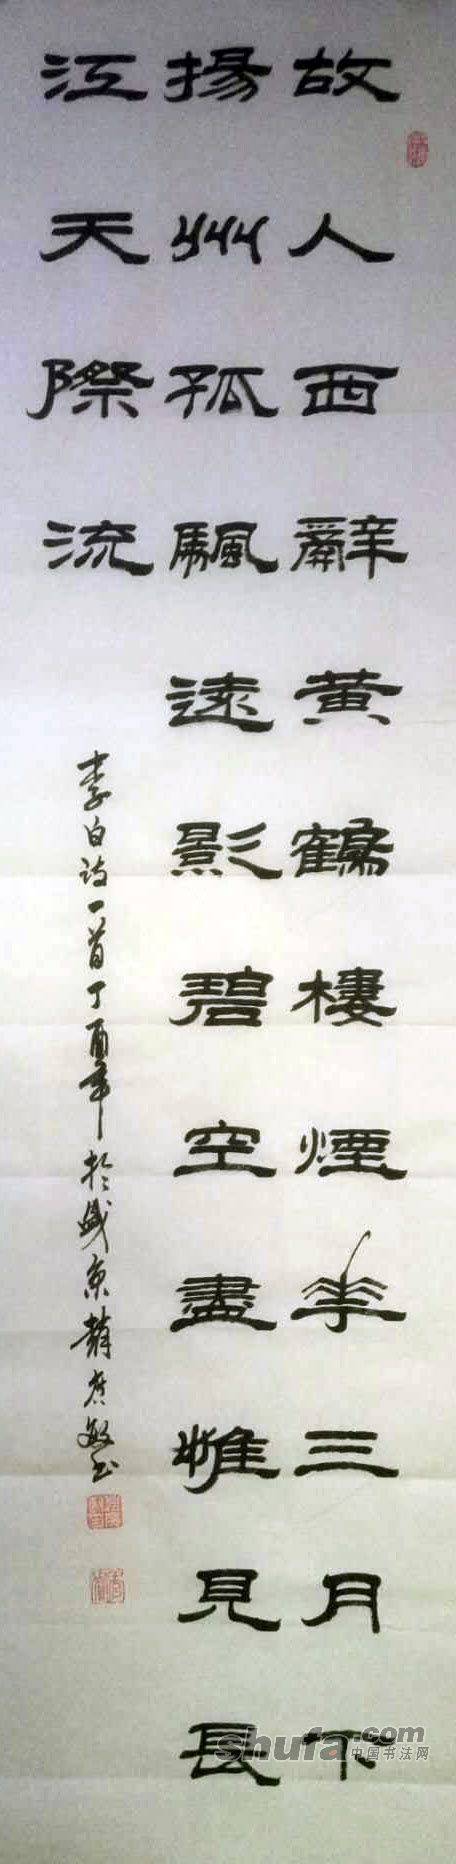 故人西辭黃鶴樓煙花三月下
揚州孤颿遠影碧空盡惟見長
江天際流
李白诗一首丁酉年於盛京韓彦敏书
shufa.com
中国书法网